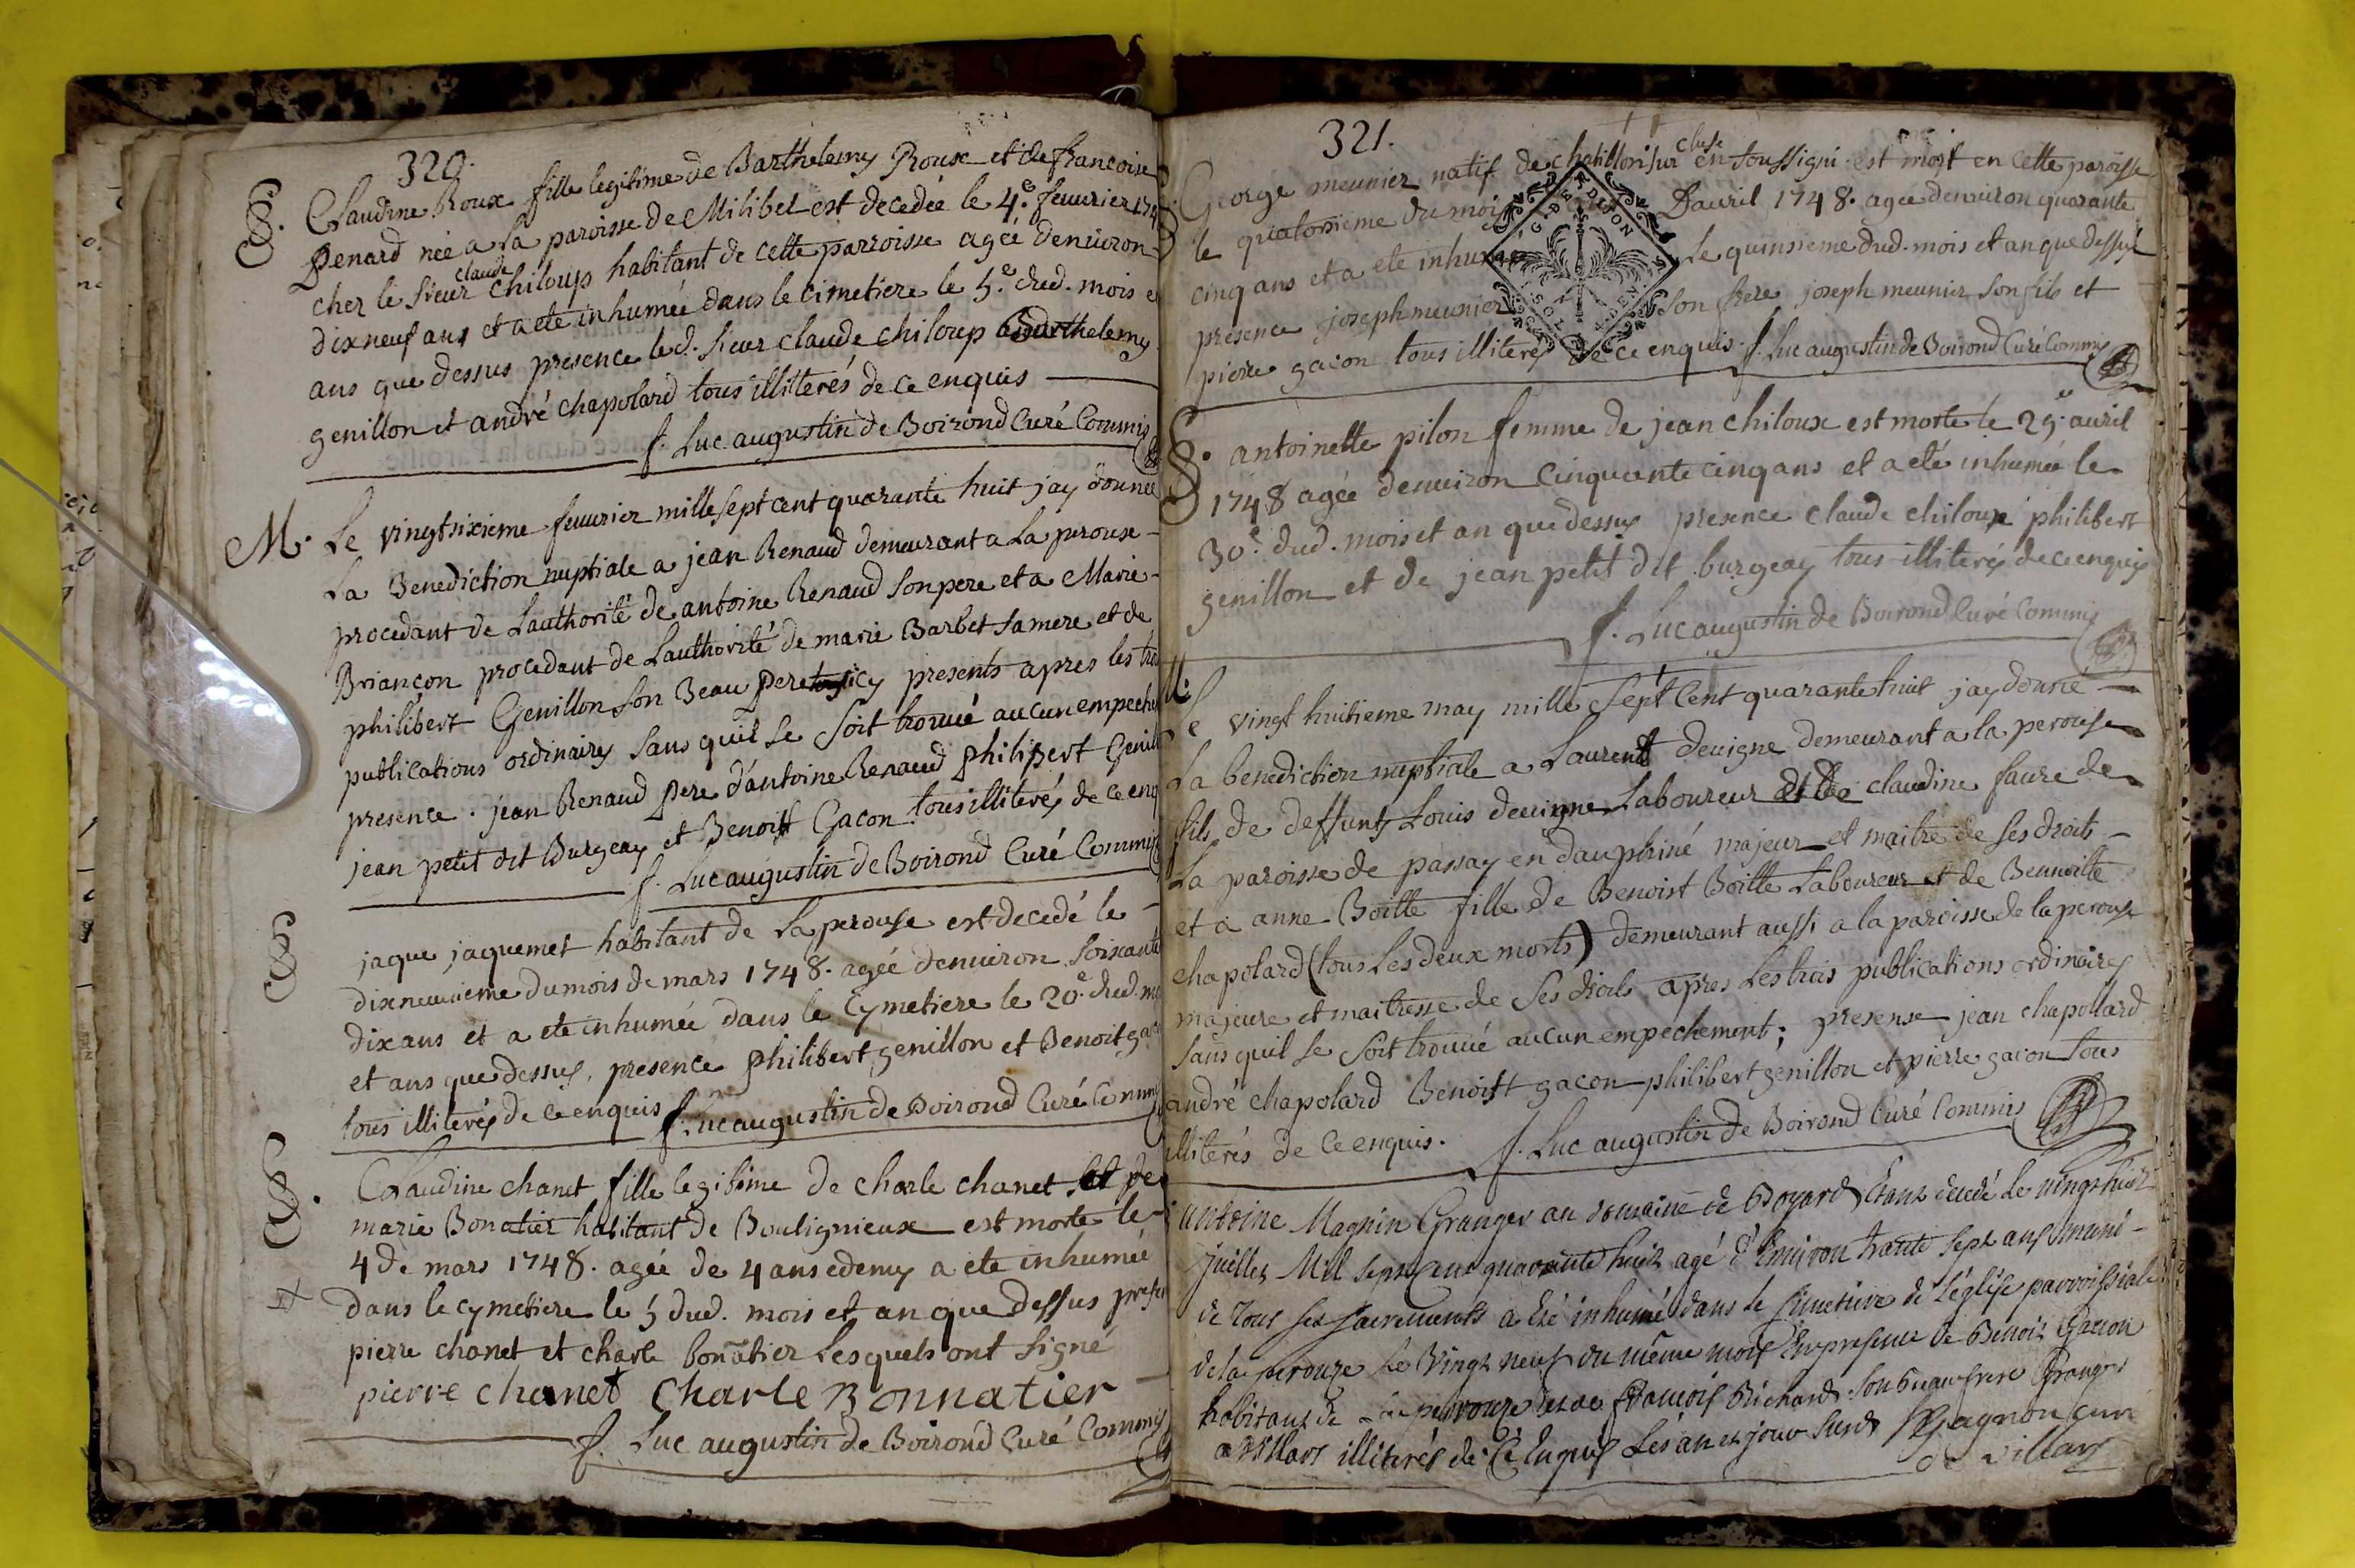 320.
S. Claudine Roux fille legitime de Barthelemy Roux et de francoise
Penard née a la paroisse de Milibel est decedée le 4.e feuurier 174
cher le sieur claude chiloup habitant de cette parroisse agée denuiron
dixneuf ans et a ete inhumée dans le cimetiere le 5.e dud. mois e
ans que dessus presence led. sieur claude chiloup Barthelemy
genillon et andré chapolard tous illiterés de ce enquis
f. Luc augustin de Boirond Curé Commis
M. Le vingtsixieme feuurier mille sept cent quarante huit jay donnée
La Benediction nuptiale a jean Renaud demeurant a La perouse
procedant de Lauthorité de antoine Renaud son pere et a Marie
Briançon procedant de Lauthorité de marie Barbet sa mere et de
philibert Genillon son Beau pere icy presents apres les troi
publications ordinaires sans quil se soit trouué aucun empeche
presence . jean Renaud pere d'antoine Renaud philipert Genill
jean petit dit Burgeay et Benoist Gacon tous illiterés de ce enq
f. Luc augustin de Boirond Curé Commis
S jaque jaquemet habitant de La perouse est decedé le
dixneuuieme du mois de mars 1748. agée denuiron soixante
dix ans et a ete inhumée dans le Cymetiere le 20.e dud. mo
et ans que dessus, presence philibert genillon et Benoit ga
tous illiterés de ce enquis f. Luc augustin de Boirond Curé Commi
S. Claudine chanet fille legitime de charle chanet et de
marie Bonatier habitant de Boulignieux est morte le
4 de mars 1748. agée de 4 ans edemy a ete inhumée
dans le cymetiere le 5 dud. mois et an que dessus presen
pierre chanet et charle bonatier Lesquels ont signé
pierre chanet Charle Bonnatier
f. Luc augustin de Boirond Curé Commis
321.
George meunier natif de chatillon sur cluse en toussigni est mort en cette paroisse
le quatorsieme du mois Dauril 1748. agée denuiron quarante
cinq ans et a ete inhumé le quinsieme dud. mois et an que dessus
presence joseph meunier son frere joseph meunier son fils et
pierre gacon tous illiterés de ce enquis. f. Luc augustin de Boirond Curé Commis
S. antoinette pilon femme de jean chiloux est morte le 29.e auril
1748 agée denuiron Cinquante cinq ans et a eté inhumée le
30.e dud. mois et an que dessus presence claude chiloup philibert
genillon et de jean petit dit burgeay tous illiterés de ce enquis
f. Luc augustin de Boirond Curé Commis
M. Le vingt huitieme may mille sept Cent quarante huit jay donné
La benediction nuptiale a Laurent deuigne demeurant a la perouse
fils de deffunts Louis deuigne Laboureur et de claudine faure de
La paroisse de passay en dauphiné majeur et maitre de ses droits
et a anne Boitte fille de Benoist Boitte Laboureur et de Bennoitte
chapolard (tous les deux morts) demeurant aussi a la paroisse de la perouse
majeure et maitresse de ses droits apres Les trois publications ordinaires
sans quil se soit trouué aucun empechement; presense jean chapollard
andré chapolard Benoist gacon philibert genillon et pierre gacon tous
illiterés de ce enquis. f. Luc augustin de Boirond Curé Commis
antoine Magnin Granger au domaine de Boyard Etant decedé Le vingt huit
juillet Mil sept Cent quarante huit agé d'Enuiron trante sept ans muni
de tous ses sacrements a été inhumé dans le Cimetiere de l'église parroissiale
de la perouze Le Vingt neuf du même mois En presence de Benoit Gacon
habitant de La perouze et de francois Richard son beau frere Granger
a Villars illiterés de Ce Enquis Les an et jour susd Gagnon curé
de villars